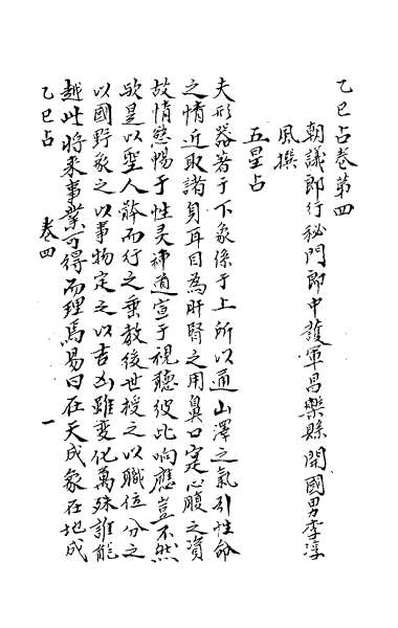 乙巳占卷第四
朝議郎行秘閣郎中護軍昌樂縣開國男李淳
風撰
五星占
夫形器著于下象係于上所以通山澤之氣引性命
之情近取諸身耳目為肝腎之用鼻口寔心腹之資
故情慾暢于性灵神道宣于視聽彼此响應豈不然
欤是以聖人體而行之垂教後世授之以職位分之
以國野象之以事物定之以吉凶雖變化萬殊誰能
越此將來事業可得而理焉易曰在天成象在地成
乙巳占
卷四
一